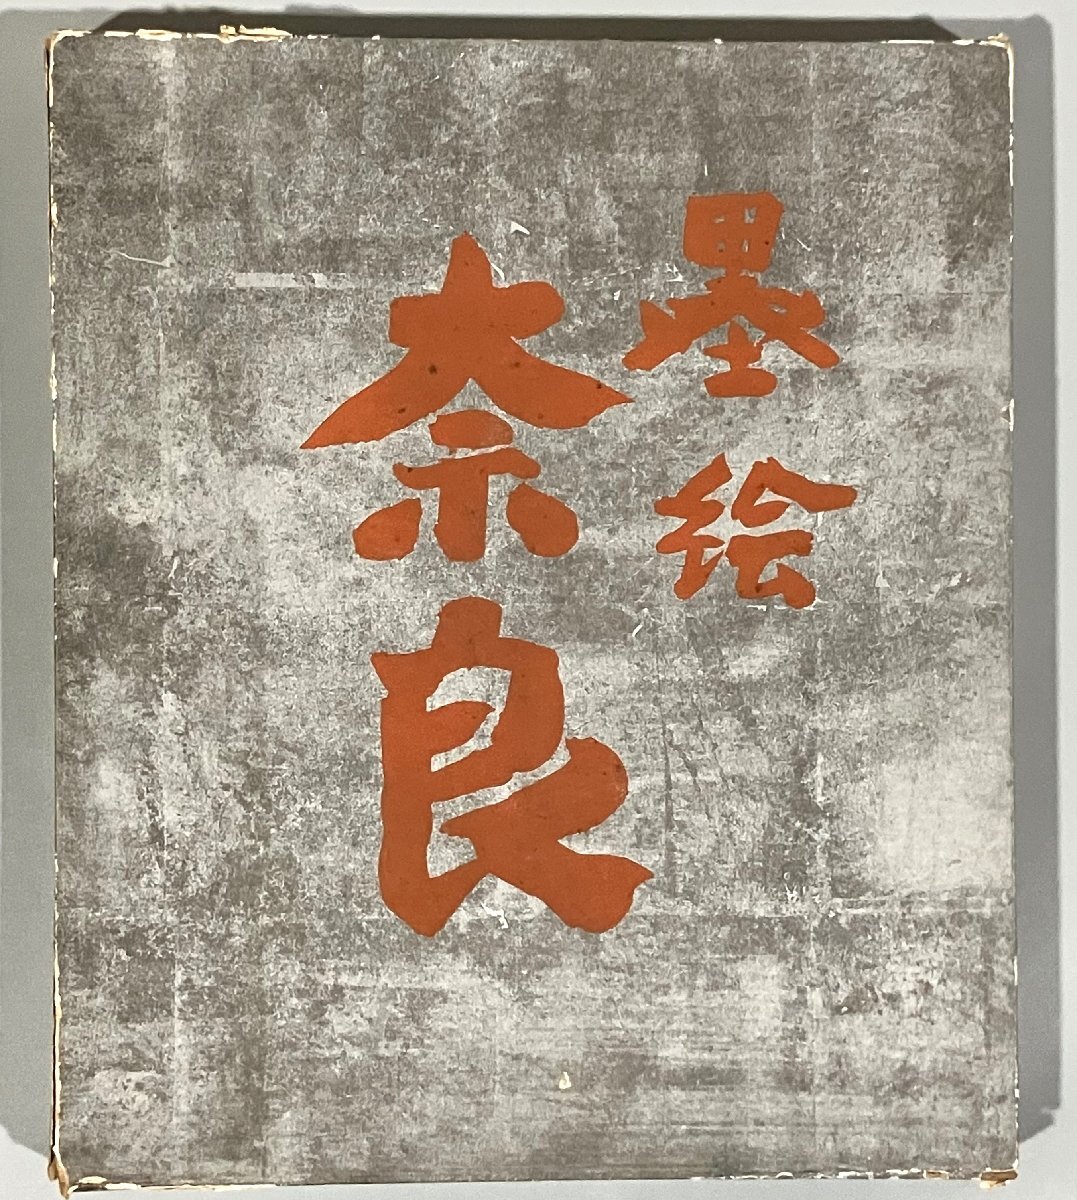 墨絵
奈良